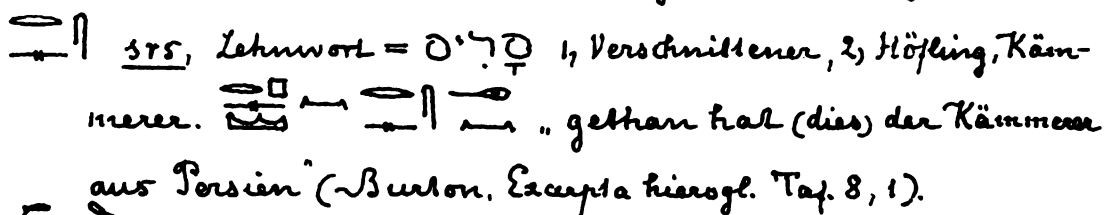 srs, Lehnwort = סָרִיס 1, Verschnittener, 2, Höfling, Käm-
merer. „gethan hat (dies) der Kämmerer
aus Persien“ (Burton, Excerpta hierogl. Taf. 8, 1).